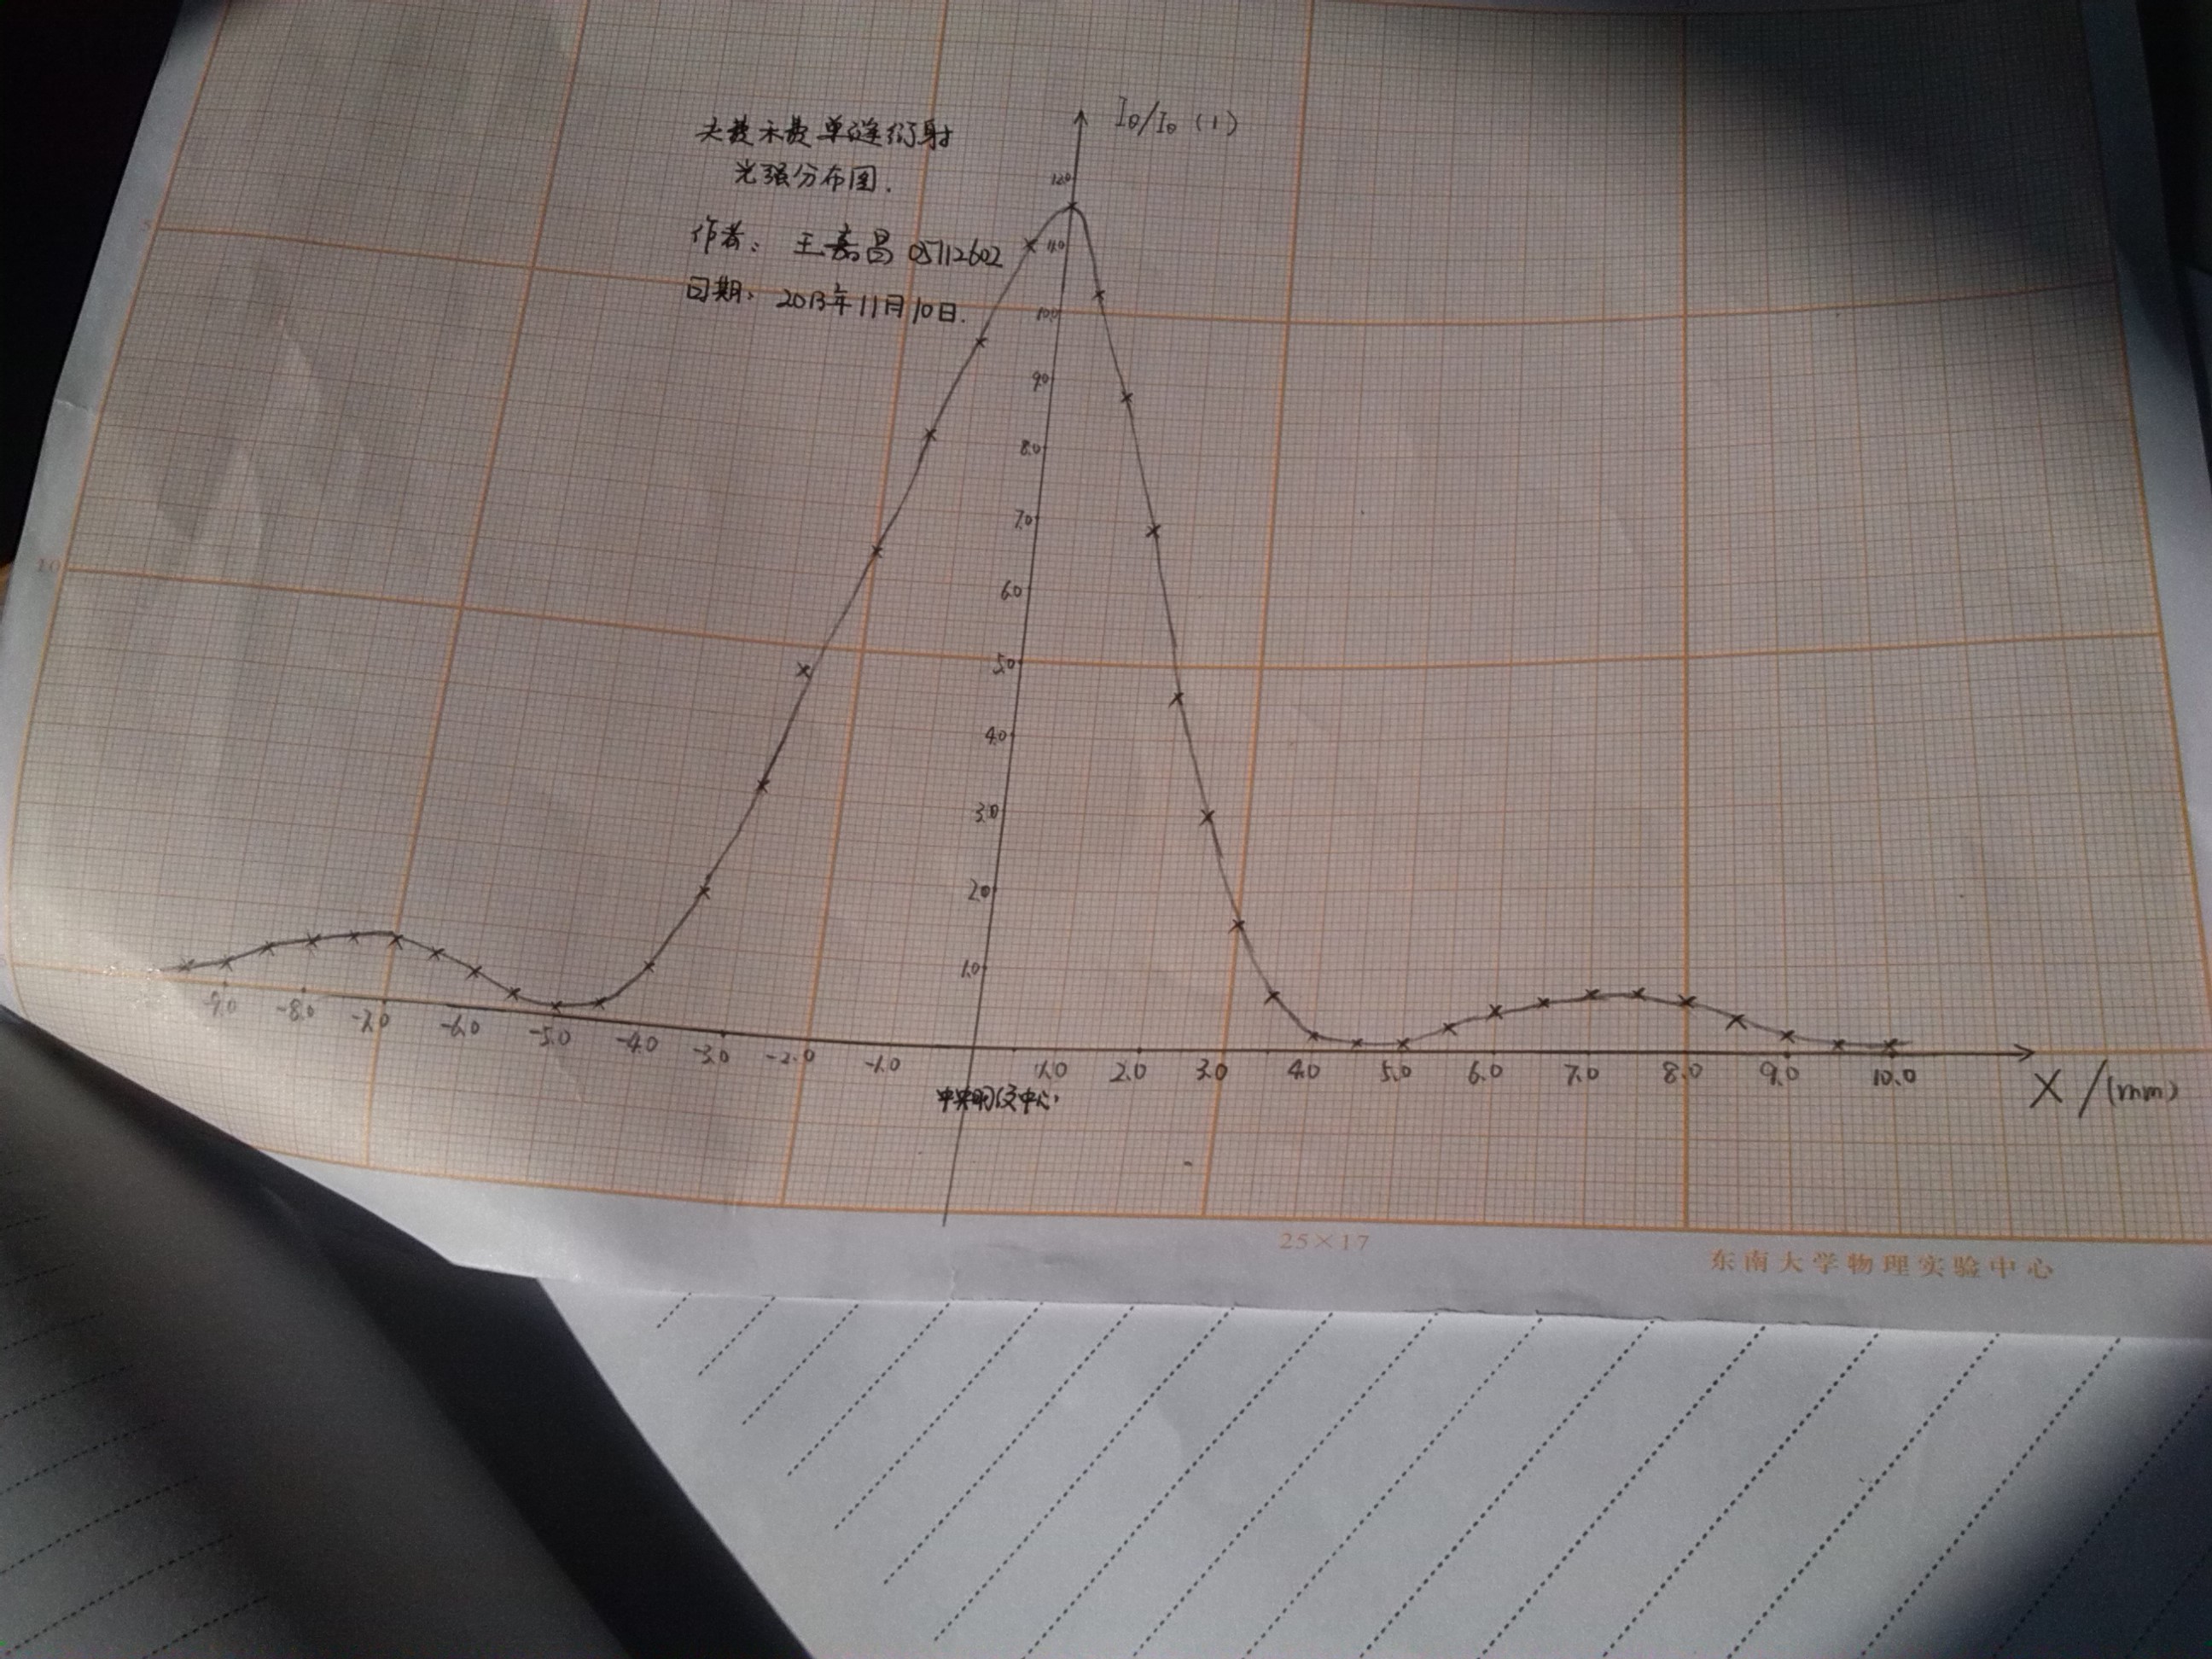 夫琅禾费单缝衍射
光强分布图.
作者: 王嘉昌 05712602
日期: 2013年11月10日.
Iθ/I₀ (1)
12.0
11.0
10.0
9.0
8.0
7.0
6.0
5.0
4.0
3.0
2.0
1.0
-9.0 -8.0 -7.0 -6.0 -5.0 -4.0 -3.0 -2.0 -1.0 1.0 2.0 3.0 4.0 5.0 6.0 7.0 8.0 9.0 10.0
X/(mm)
中央明纹中心.
5
10
25×17
东南大学物理实验中心